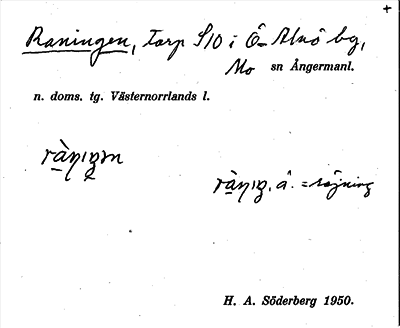 +
Raningen, torp S10 i Ö. Alnö by,
Mo sn Ångermanl.
n. doms. tg. Västernorrlands l.
ràṇıŋm
ràṇıŋ, â. = röjning
H. A. Söderberg 1950.